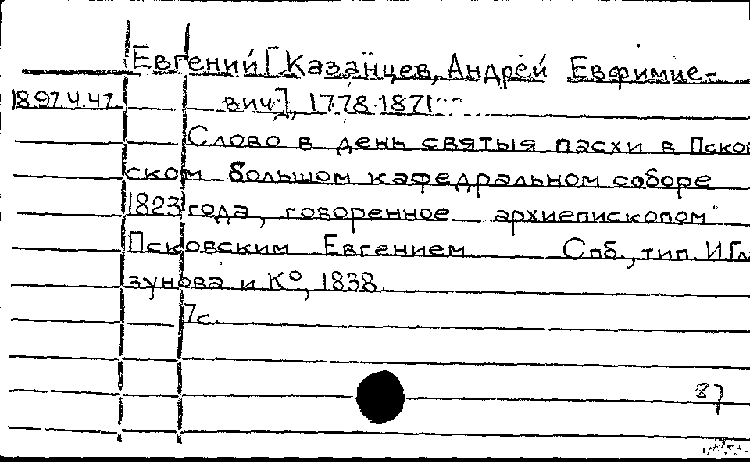 Евгений [Казанцев, Андрей Евфимие-
18.97.4.47 вич], 1778-1871
Слово в день святыя пасхи в Пско
ском большом кафедральном соборе
1823 года, говоренное архиепископом
Псковским Евгением Спб., тип. И.Гла
зунова и К°, 1838.
7с.
87